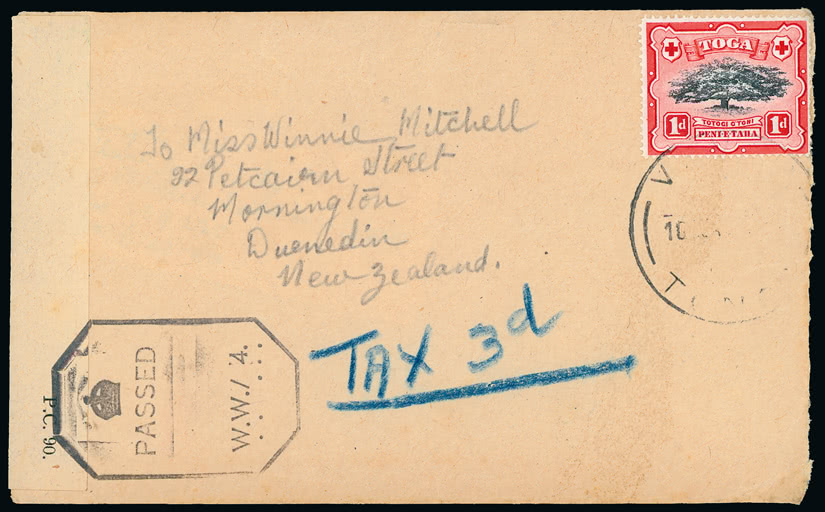 TOGA
TOTOGI O'TONI
1d PENI-E-TAHA 1d
To Miss Winnie Mitchell
22 Petcairn Street
Mornington
Duenedin
New Zealand.
V
10
T
TAX 3d
PASSED
W.W./ 4.
P.C. 90.